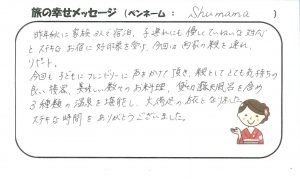 旅の幸せメッセージ (ペンネーム: Shumama )
昨年秋に家族4人で宿泊、子連れにも優しくていねいな対応
とステキなお宿に好印象を受け、今回は両家の親も連れ、
リピート。
今回も子どもにフレンドリーに声をかけて頂き、親としてとても気持ちの
良い接客、美味しい数々のお料理、貸切露天風呂を含め
3種類の温泉を堪能し、大満足の旅となりました。
ステキな時間をありがとうございました。